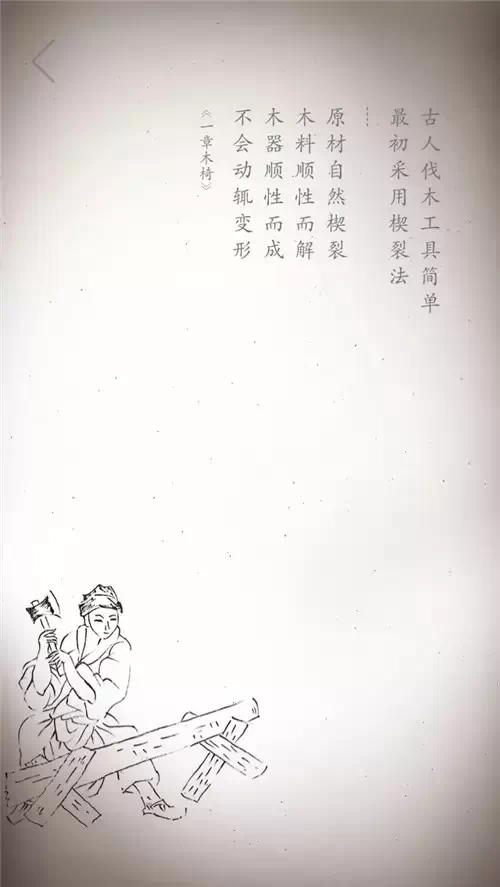 古人伐木工具简单
最初采用楔裂法
……
原材自然楔裂
木料顺性而解
木器顺性而成
不会动辄变形
《一章木椅》